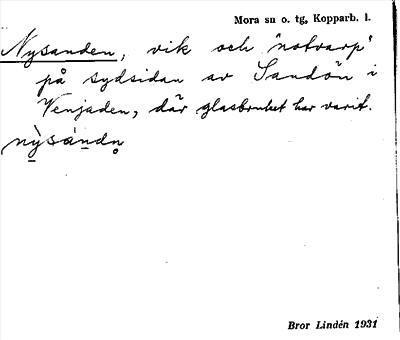 Mora sn o. tg, Kopparb. l.
Nysanden, vik och "notvarp"
på sydsidan av Sandön i
Venjaden, där glasbruket har varit.
nỳsándn̥
Bror Lindén 1931